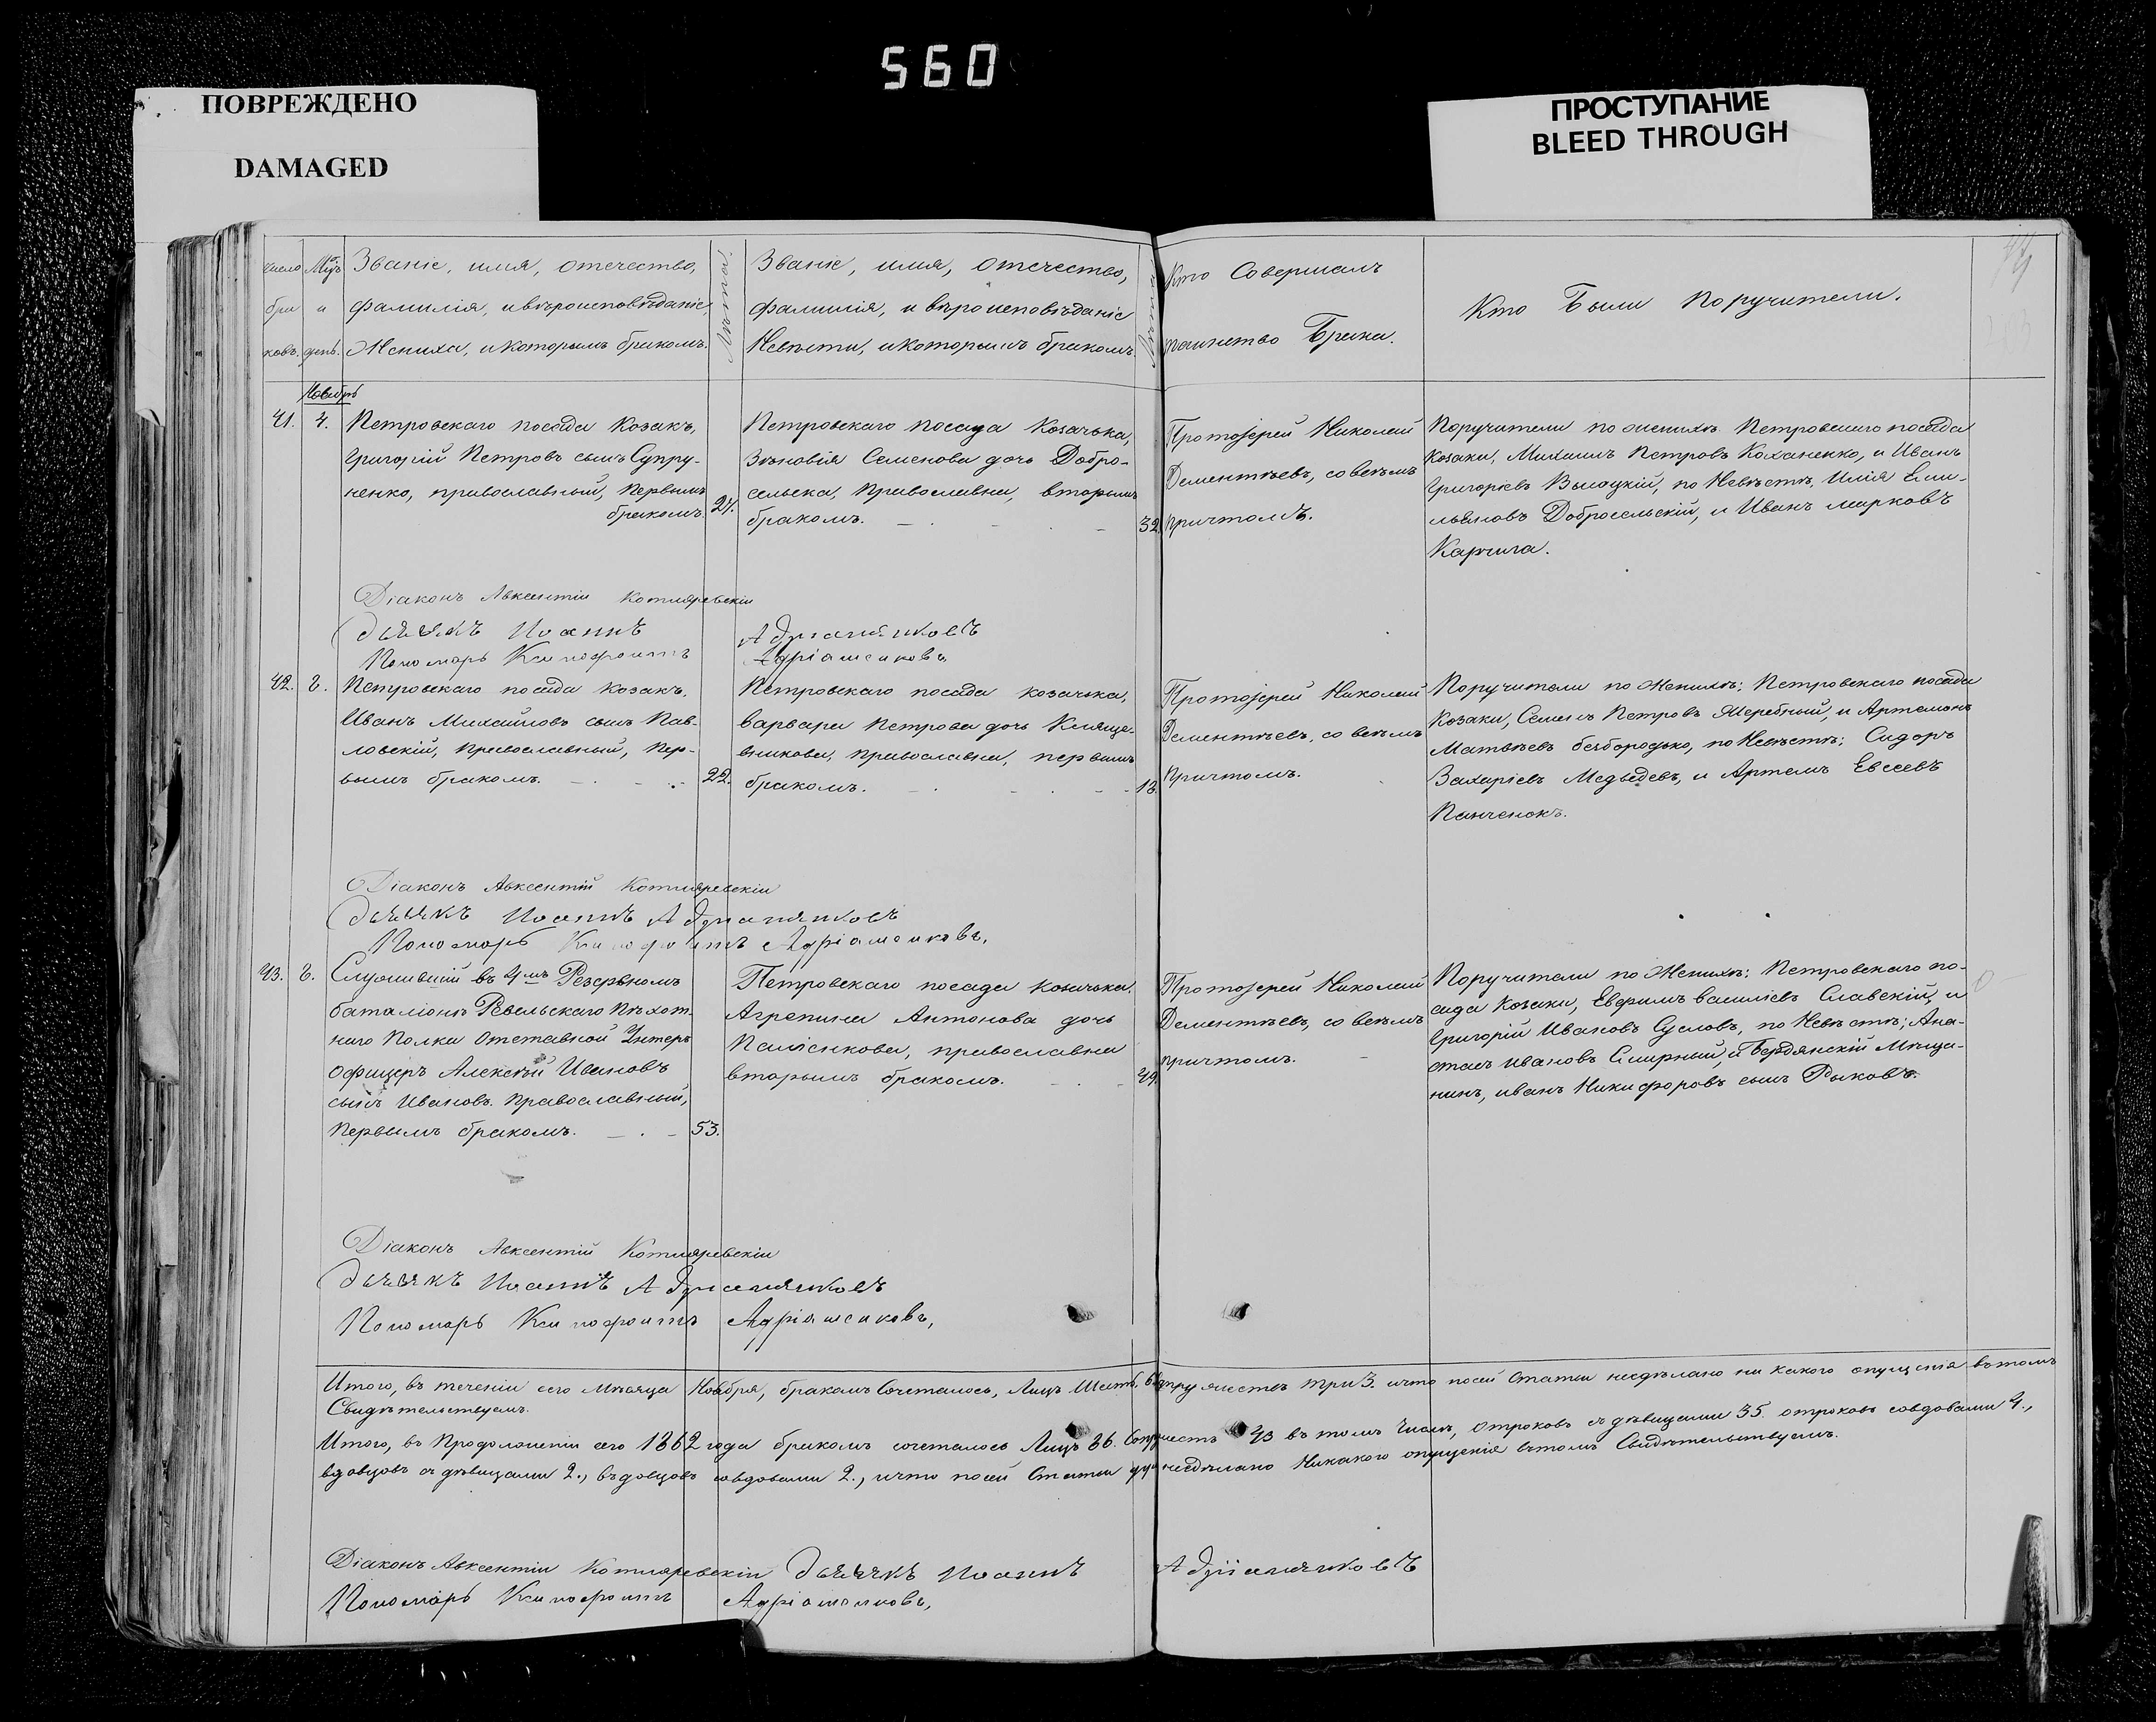 560
ПОВРЕЖДЕНО
DAMAGED
ПРОСТУПАНИЕ
BLEED THROUGH
число бра ковъ.
Мцъ и день.
Званіе, имя, отечество,
фамилія, и вѣроисповѣданіе
Жениха, и которымъ бракомъ.
Званіе, имя, отечество,
фамилія, и вѣроисповѣданіе
Невѣсты, и которымъ бракомъ
Кто Совершалъ
таинство Брака.
Кто Были поручители.
44
Ноябрь
41. 4.
Петровскаго посада Козакъ,
Григорій Петровъ сынъ Супру-
ненко, православный, первымъ
бракомъ. 27.
Петровскаго посада Козачька,
Зѣновія Семенова дочь Добро-
сельска, Православна, вторымъ
бракомъ. 32
Протоіерей Николай
Дементьевъ, со всѣмъ
причтомъ.
Поручители по женихѣ Петровскаго посада
Козаки, Михаилъ Петровъ Коханенко, и Иванъ
Григорьевъ Высоцкій, по Невѣстѣ, Илія Еми-
льяновъ Добросельскій, и Иванъ марковъ
Діаконъ Авксентій Котляревскій
Дьячекъ Иоаннъ
Пономарь Ксенофонтъ
42.
Петровскаго посада Козакъ.
Иванъ Михайловъ сынъ Пав-
ловскій, православный, пер-
вымъ бракомъ. 22.
Петровскаго посада козачька,
варвара Петрова дочь
православна, первымъ
бракомъ. 18.
Протоіерей Николай
Дементьевъ, со всѣмъ
Причтомъ.
Поручители по Женихѣ: Петровскаго посада
Козаки, Семенъ Петровъ Жеребный, и Артемонъ
Матвѣевъ безбородько, по Невѣстѣ: Сидоръ
Захаріевъ Медведевъ, и Артемъ Евсеевъ
Панченокъ.
Діаконъ Авксентій Котляревскій
Дьячекъ Иоаннъ
Пономарь Ксенофонтъ
43.
Служившій въ 4мъ Резервномъ
баталіонѣ Ревельскаго Пѣхот-
наго Полка Отставной Унтеръ
Офицеръ Алексѣй Ивановъ
сынъ Ивановъ. Православный,
Первымъ бракомъ. 53.
Петровскаго посада козачька.
Агрепина Антонова дочь
православна
вторымъ бракомъ. 49.
Протоіерей Николай
Дементьевъ, со всѣмъ
причтомъ.
Поручители по Женихѣ: Петровскаго по-
сада Козаки, Евфимъ василіевъ Славскій, и
Григорій Ивановъ Сусловъ, по Невѣстѣ; Ана-
стасъ ивановъ Смирный, и Бердянскій Мѣща-
нинъ, иванъ Никифоровъ сынъ Рыковъ.
Діаконъ Авксентій Котляревскій
Дьячекъ Иоаннъ
Пономарь Ксенофонтъ
Итого, въ теченіи сего Мѣсяца Ноября, бракомъ Сочеталось, Лицъ Шесть, 6 супружествъ три 3. и что посей Статьи несдѣлано ни какого опущенія вътомъ
Свидѣтельствуемъ.
Итого, въ Продолженіи сего 1862 года бракомъ сочеталось Лицъ 86. Супружествъ 43 въ томъ Числѣ, отроковъ съ дѣвицами 35. отроковъ совдовами 4.,
вдовцовъ съ дѣвицами 2., въдовцовъ совдовами 2., и что посей Статьи несдѣлано Никакого опущенія вътомъ Свидѣтельствуемъ.
Діаконъ Авксентій Котляревскій Дьячекъ Иоаннъ
Пономарь Ксенофонтъ